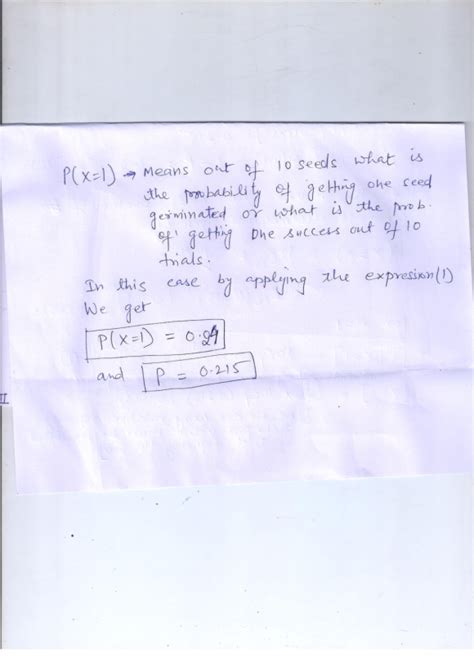 P(X=1) → Means out of 10 seeds what is
the probability of getting one seed
geiminated or what is the prob.
of getting one success out of 10
trials.
In this case by applying the expresion(1)
We get
P(X=1) = 0.24
and P = 0.215
II